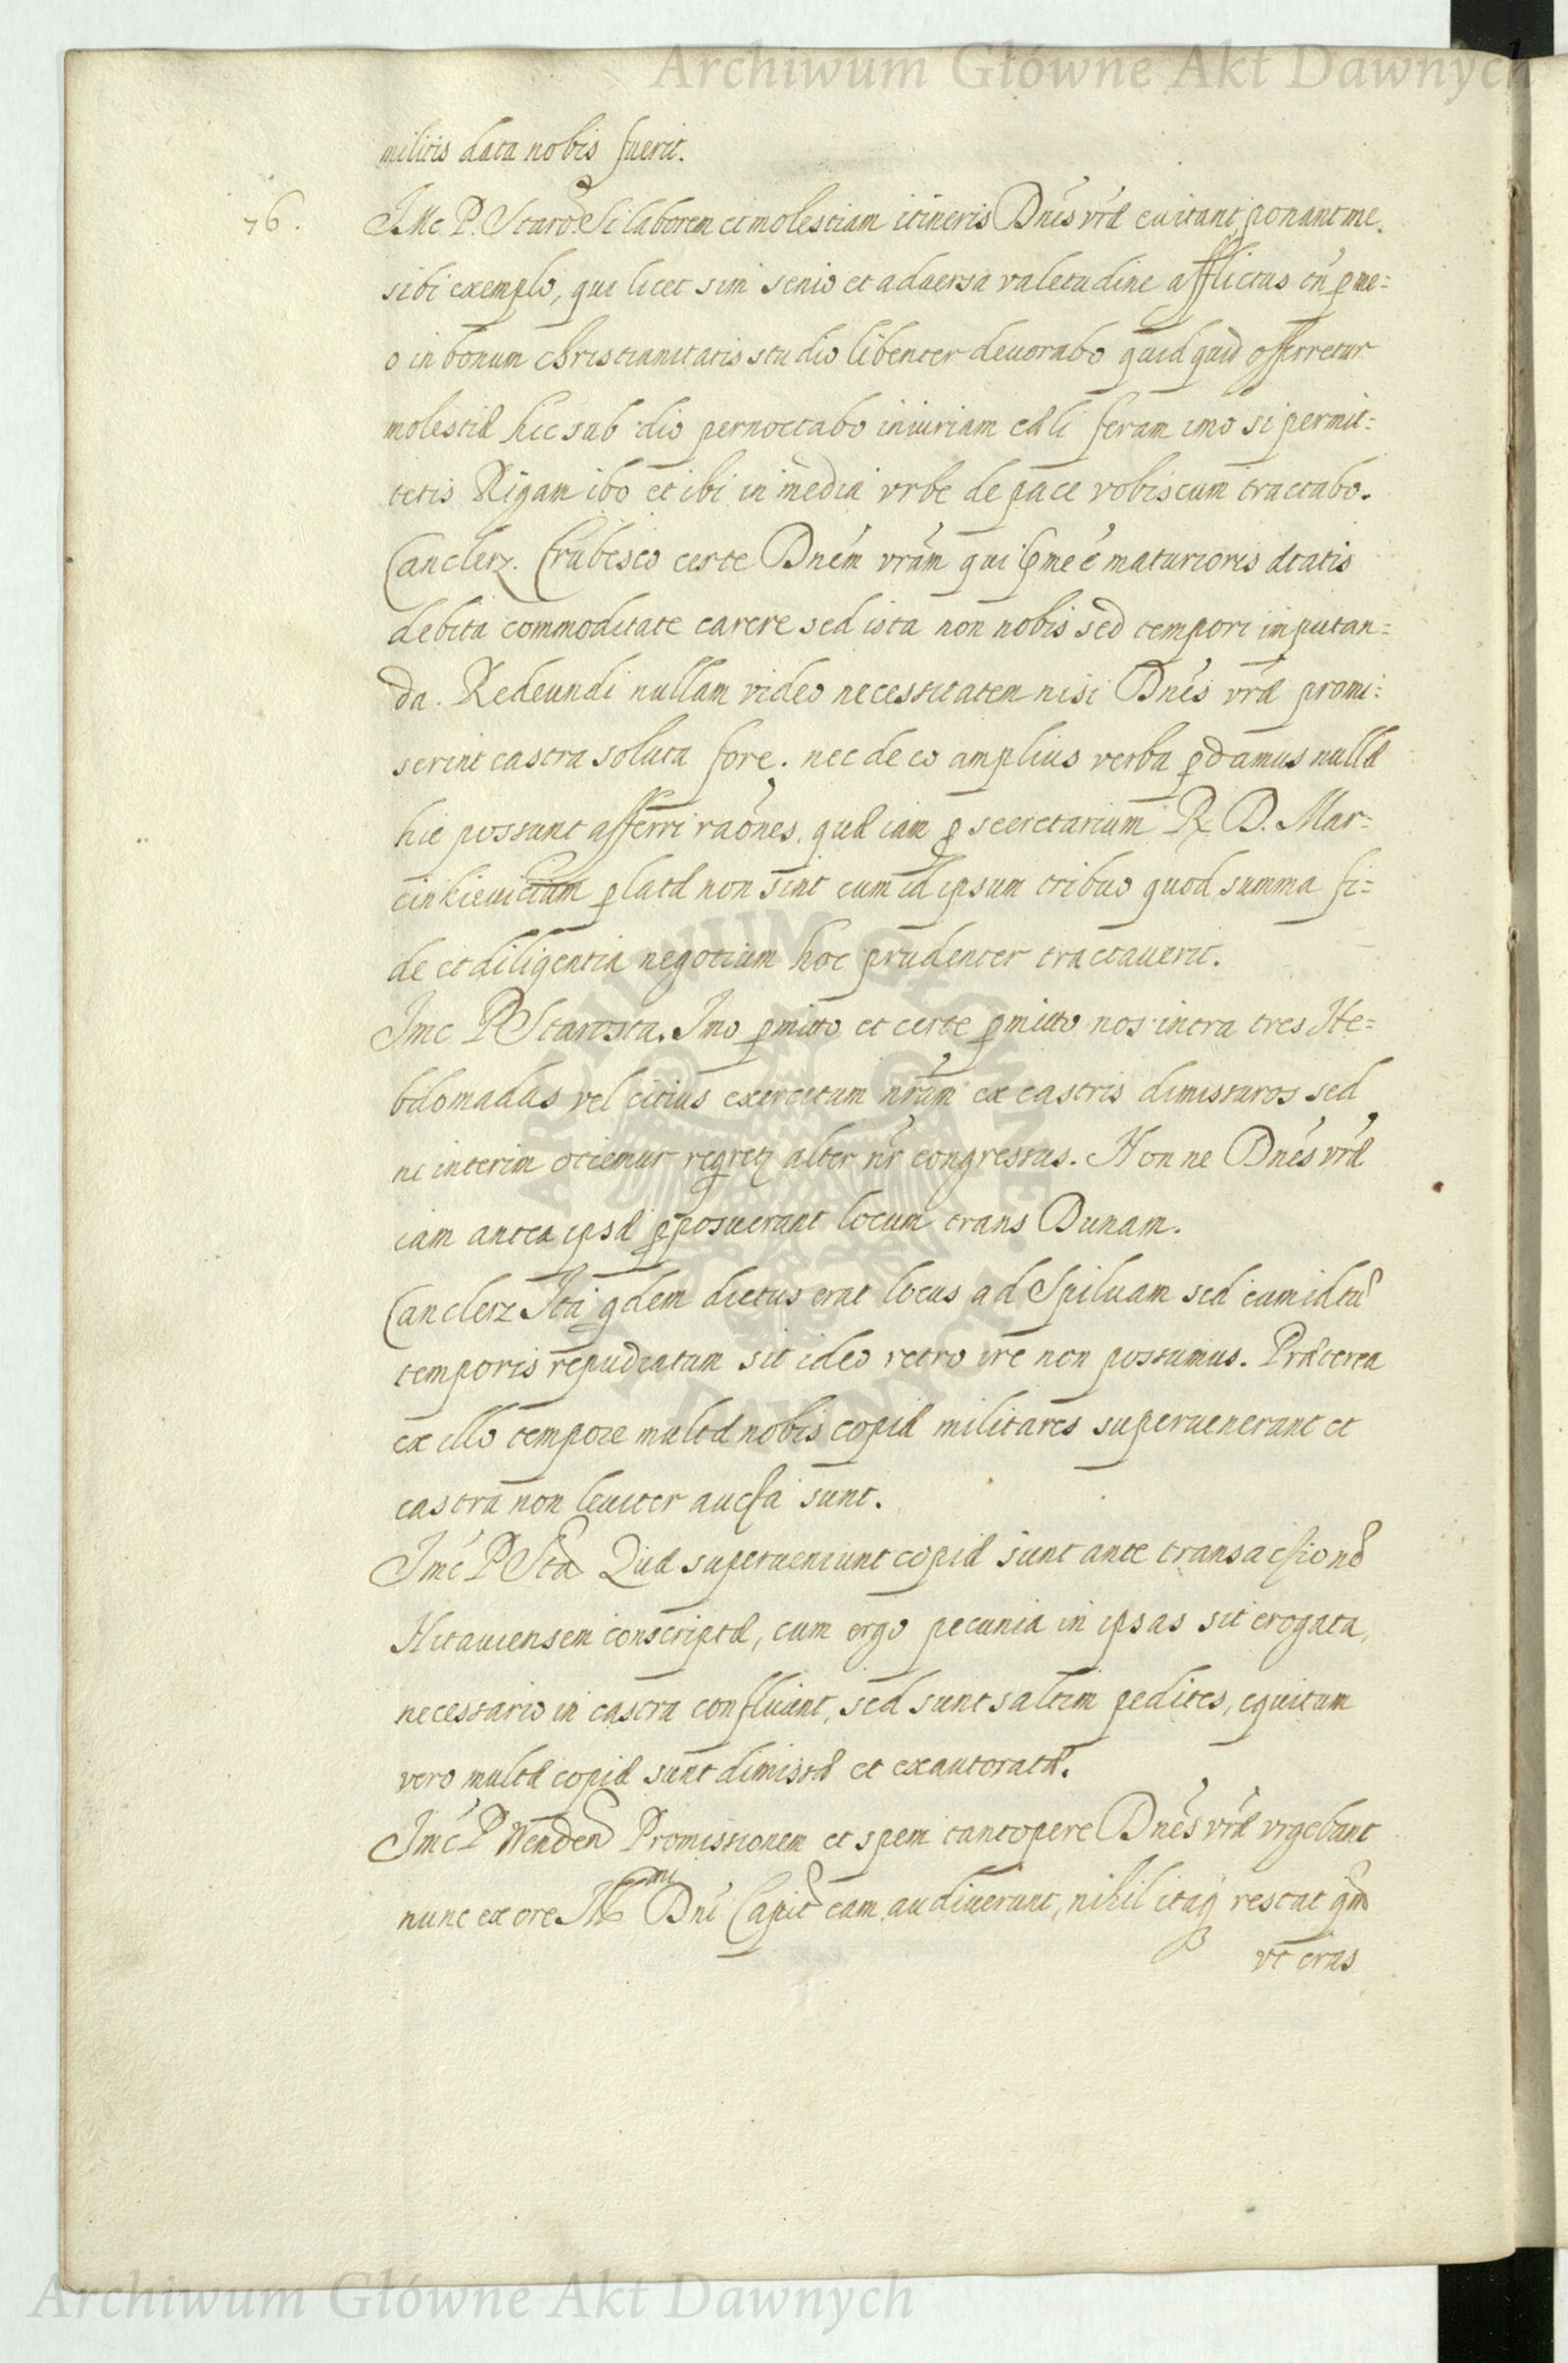 Archiwum Główne Akt Dawnych
militis data nobis fuerit.
76. JMc P. Staro. Si laborem et molestiam itineris Dnẽs vræ euitant, ponant me
sibi exemplo, qui licet sim senio et aduersa valetudine afflictus tñ p me=
o in bonum christianitatis studio libenter deuorabo quidquid offerretur
molestiæ hic sub dio pernoctabo iniuriam cæli feram imo si permit=
tetis Rigam ibo et ibi in media vrbe de pace vobiscum tractabo.
Canclerz. Erubesco certe Dnẽm vrãm qui me ẽ maturioris ætatis
debita commoditate carere sed ista non nobis sed tempori imputan=
da. Redeundi nullam video necessitatem nisi Dnẽs vræ promi=
serint castra soluta fore. nec de eo amplius verba pdamus nullæ
hic possunt afferri raõnes, quæ iam p secretarium R. D. Mar=
cinkieuicium platæ non sint cum id ipsum tribuo quod summa fi=
de et diligentia negotium hoc prudenter tractauerit.
Jmc P Starosta. Jmo pmitto et certe pmitto nos intra tres He=
bdomadas vel citius exercitum nrũm ex castris dimissuros sed
ne interim otiemur alter nr̃ congressus. Nonne Dnẽs vræ
iam antea ipsæ pposuerant locum trans Dunam.
Canclerz Ita qdem dictus erat locus ad Spiluam sed cum id tũ
temporis repudiatum sit ideo retro ire non possumus. Præterea
ex illo tempore multæ nobis copiæ militares superuenerant et
castra non leuiter aucta sunt.
Jmc P Sta Quæ superueniunt copiæ sunt ante transactionẽ
Mitauiensem conscriptæ, cum ergo pecunia in ipsas sit erogata,
necessario in castra confluunt, sed sunt saltim pedites, equitum
vero multæ copiæ sunt dimissæ et exautoratæ.
Jmc P Wenden Promissionem et spem tantopere Dnẽs vræ vrgebant
nunc ex ore Dnĩ Capit eam audiuerunt, nihil itaq restat qm
vt cras
Archiwum Główne Akt Dawnych